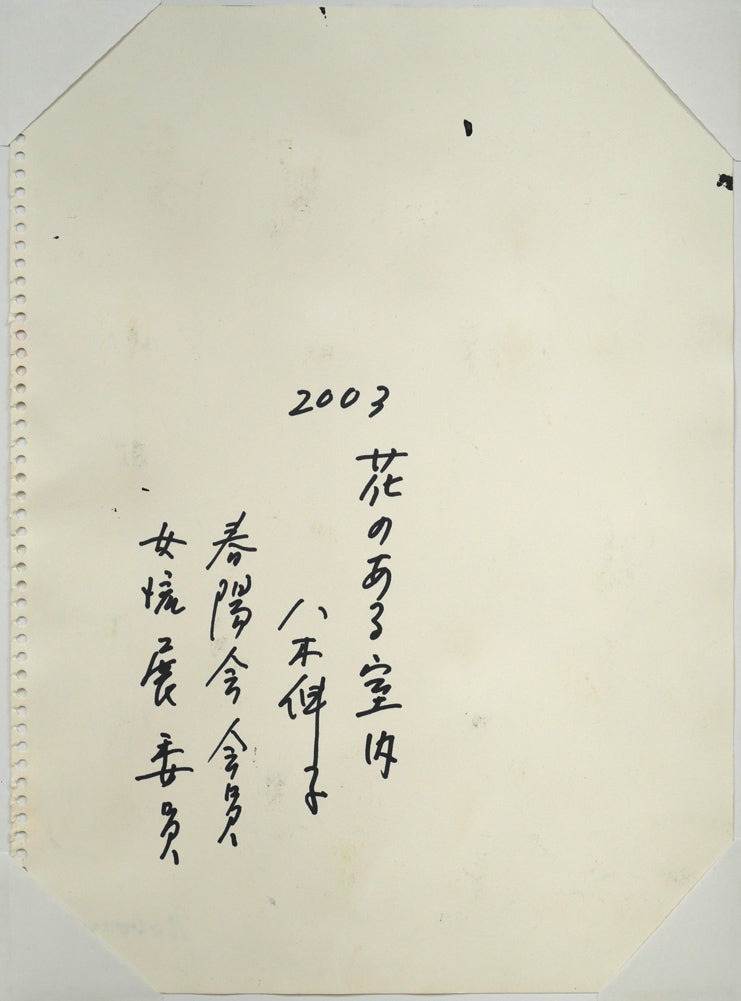 2003
花のある室内
八木伸子
春陽会会員
女流展委員